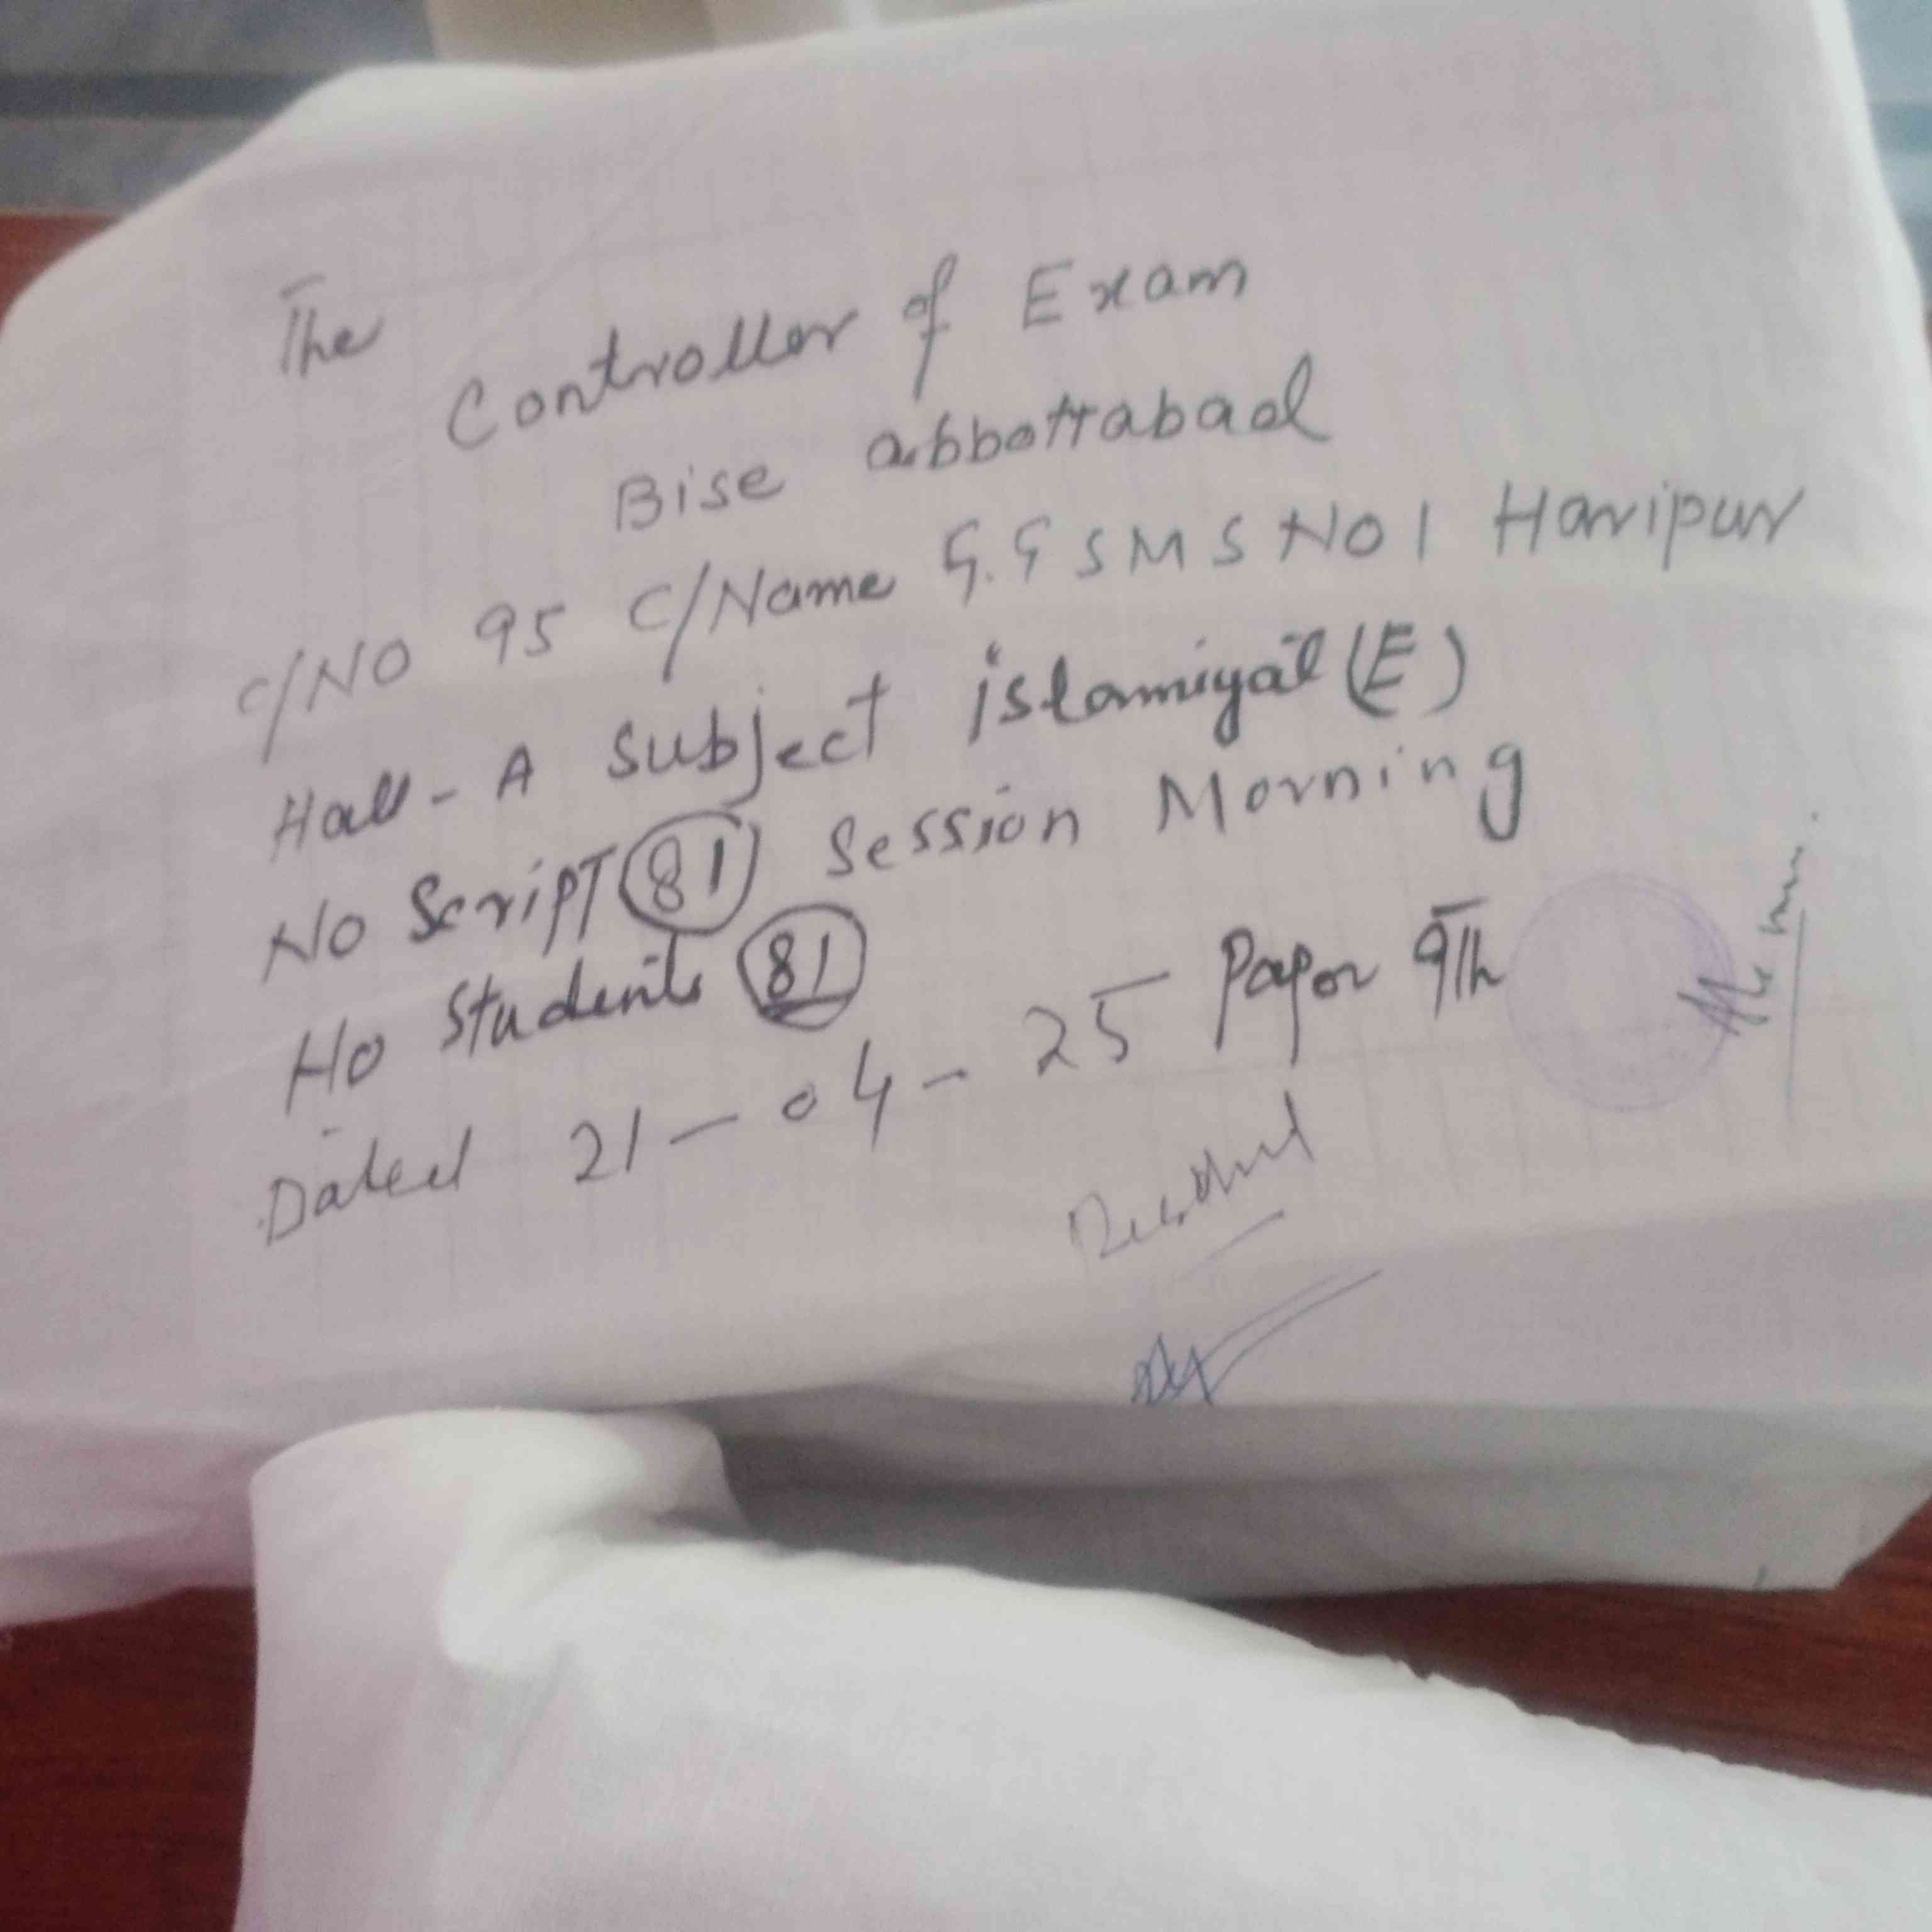 The
Controller of Exam
Bise abbottabad
C/NO 95 C/Name G.G S M S NO 1 Haripur
Hall - A Subject islamiyat (E)
No Script 81 Session Morning
No Students 81
Dated 21-04-25 Paper 9Th